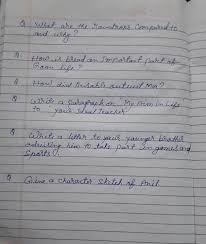 Q What are the raindrops compared to
and why?
Q. How is bread an important part of
Goan life?
Q How did
Q Write a Paragraph on My Aim in Life
to your Ideal Teacher.
Q Write a letter to your younger brother
advising him to take part in games and
sports.
Q Give a character sketch of Amil